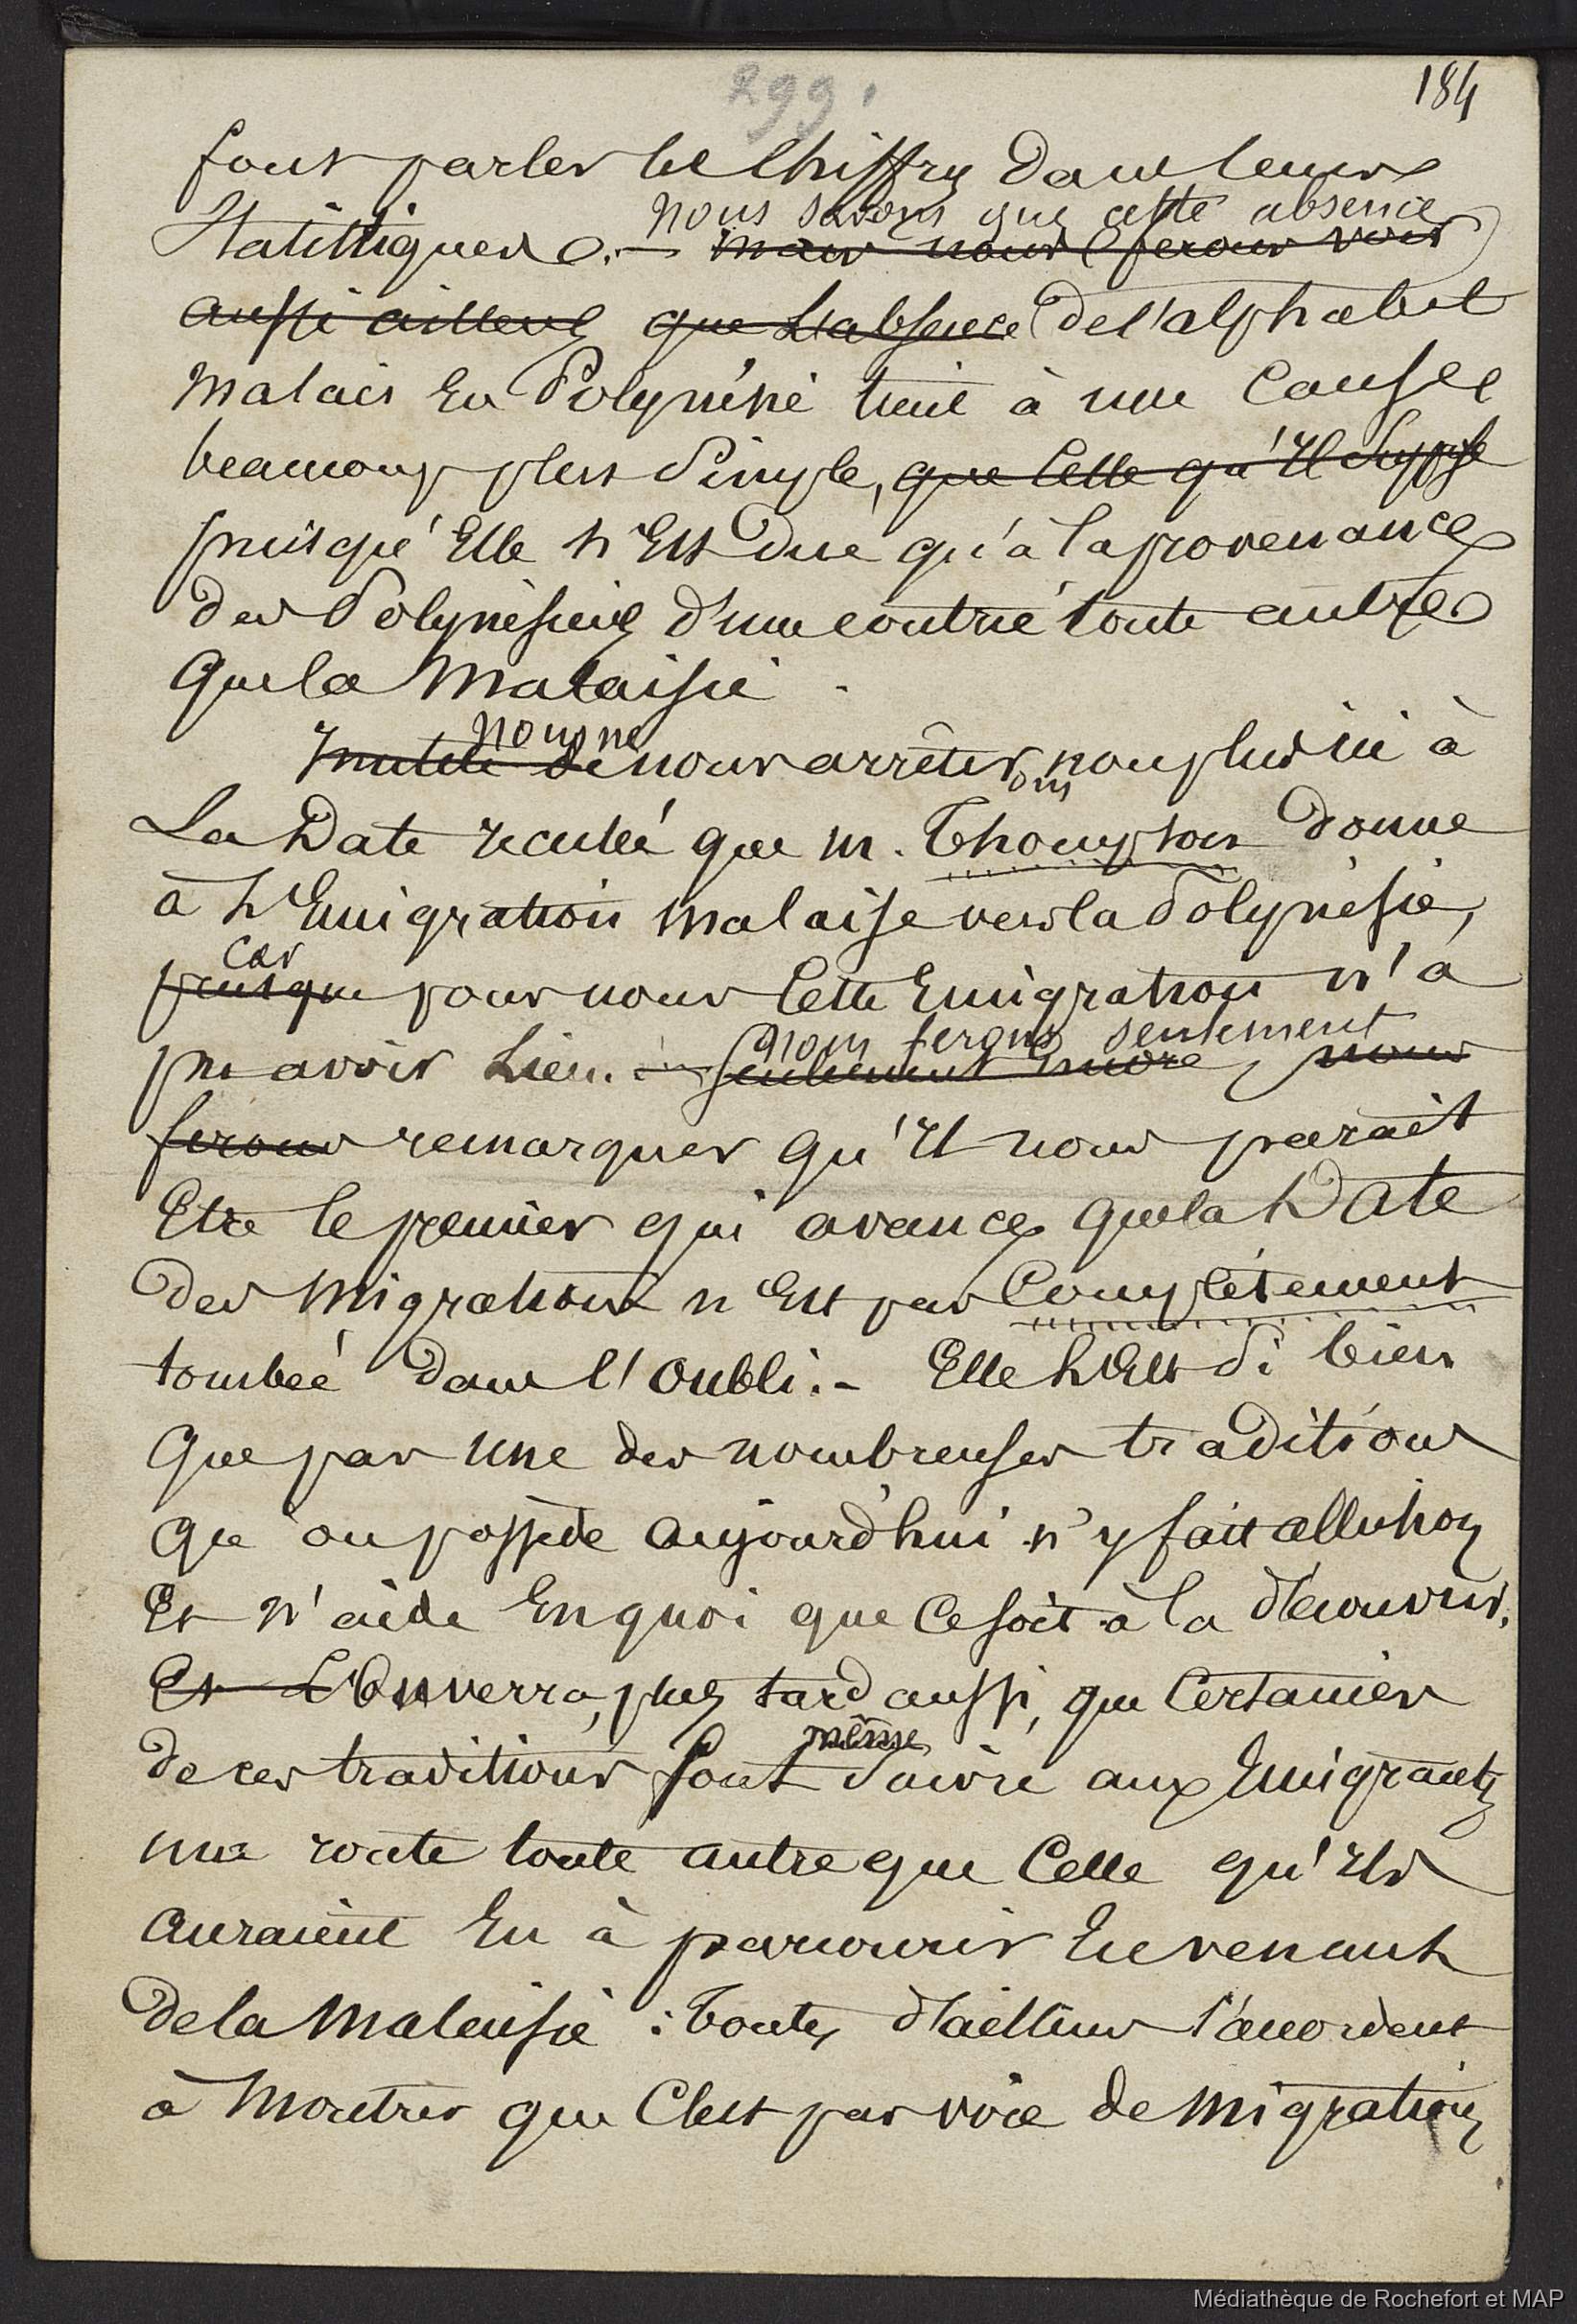 299.
184
font parler les chiffres dans leurs
nous savons que cette absence
Statistiques. — mais nous ferons voir
aussi ailleurs que l'absence de l'alphabet
malais en Polynésie tient à une cause
beaucoup plus simple, que celle qu'il suppose
puisqu'elle n'est due qu'à la provenance
des Polynésiens d'une contrée toute autre
que la Malaisie.
nous ne
Inutile de nous arrêter non plus ici à
ons
La Date reculée que m. Thompson donne
à l'Emigration malaise vers la Polynésie,
car
puisque pour nous cette Emigration n'a
nous ferons seulement
pu avoir lieu. — Seulement encore, nous
ferons remarquer qu'il nous parait
Etre le premier qui avance que la Date
des migrations n'est pas complétement
tombée dans l'oubli. — Elle l'est si bien
que pas une des nombreuses traditions
qu'on possède aujourd'hui n'y fait allusion
Et n'aide En quoi que ce soit à la découvrir.
Et L'On verra, plus tard aussi, que certaines
même
de ces traditions font suivre aux Emigrants
une route toute autre que celle qu'ils
auraient Eu à parcourir En venant
de la Malaisie : toutes d'ailleurs s'accordent
à montrer que c'est par voie de migration
Médiathèque de Rochefort et MAP